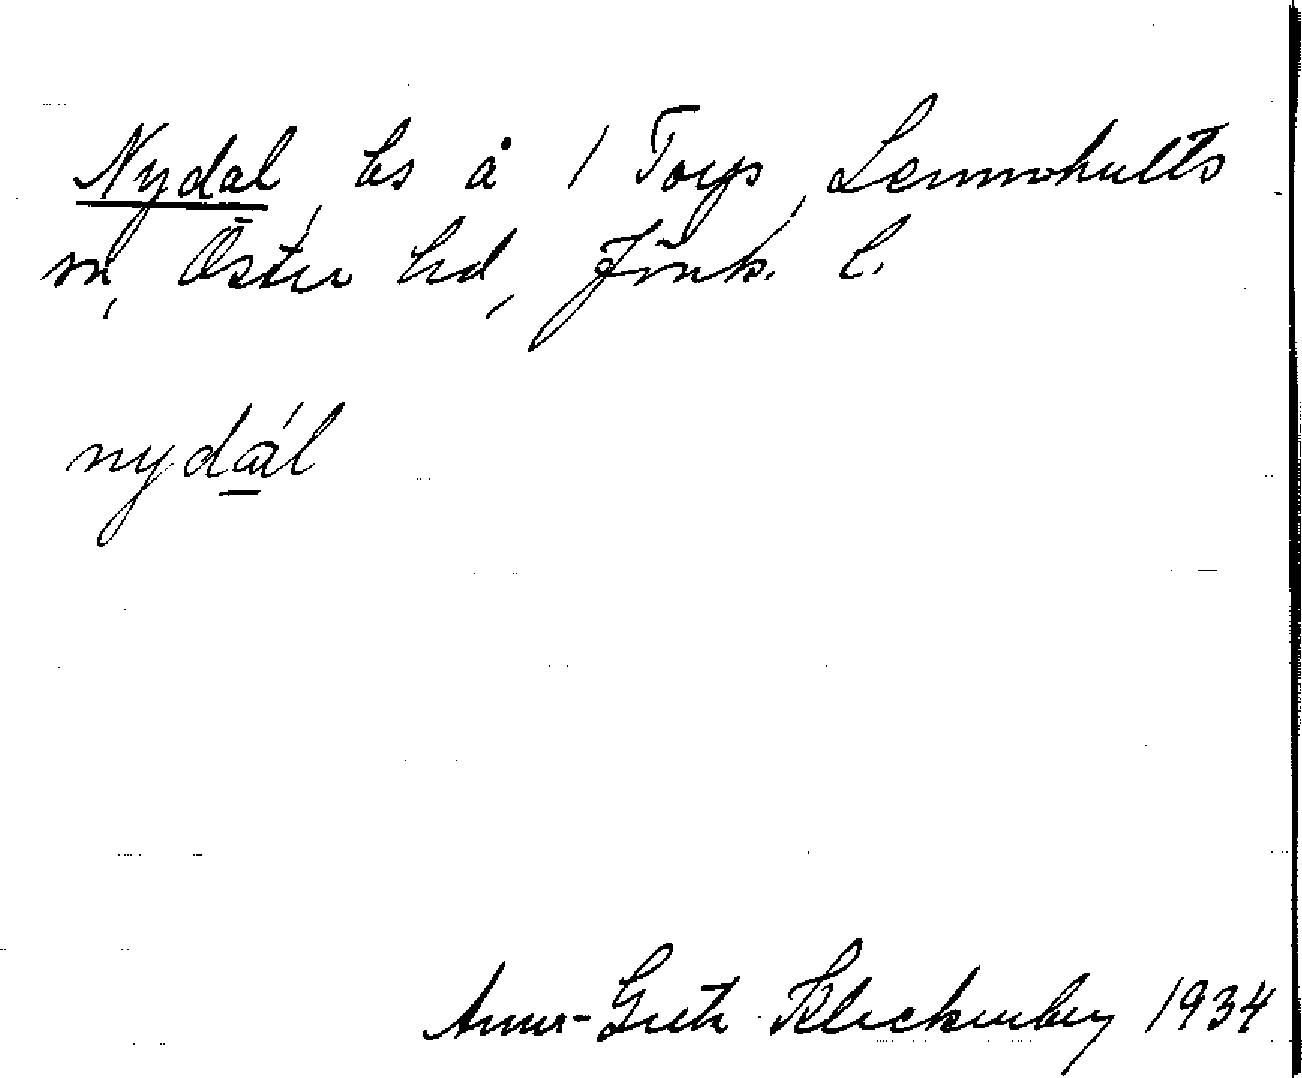 Nydal, ls å 1 Torp, Lemnhults
sn, Östra hd, Jönk. l.
nydál
Anna-Greta Kleckenberg 1934